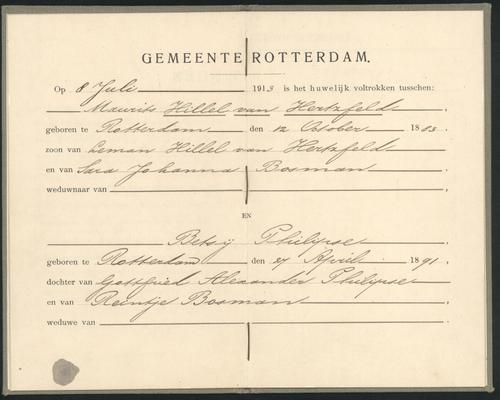 GEMEENTE ROTTERDAM.
Op 8 Juli 191 is het huwelijk voltrokken tusschen:
Maurits Hillel van Hertzfeld,
geboren te Rotterdam den 12 October 1883
zoon van Leman Hillel van Hertzfeld
en van Sara Johanna Bosman
weduwnaar van
EN
Betsij Philipse
geboren te Rotterdam den 27 April 1891.
dochter van Gottfried Alexander Philipse
en van Reintje Bosman
weduwe van